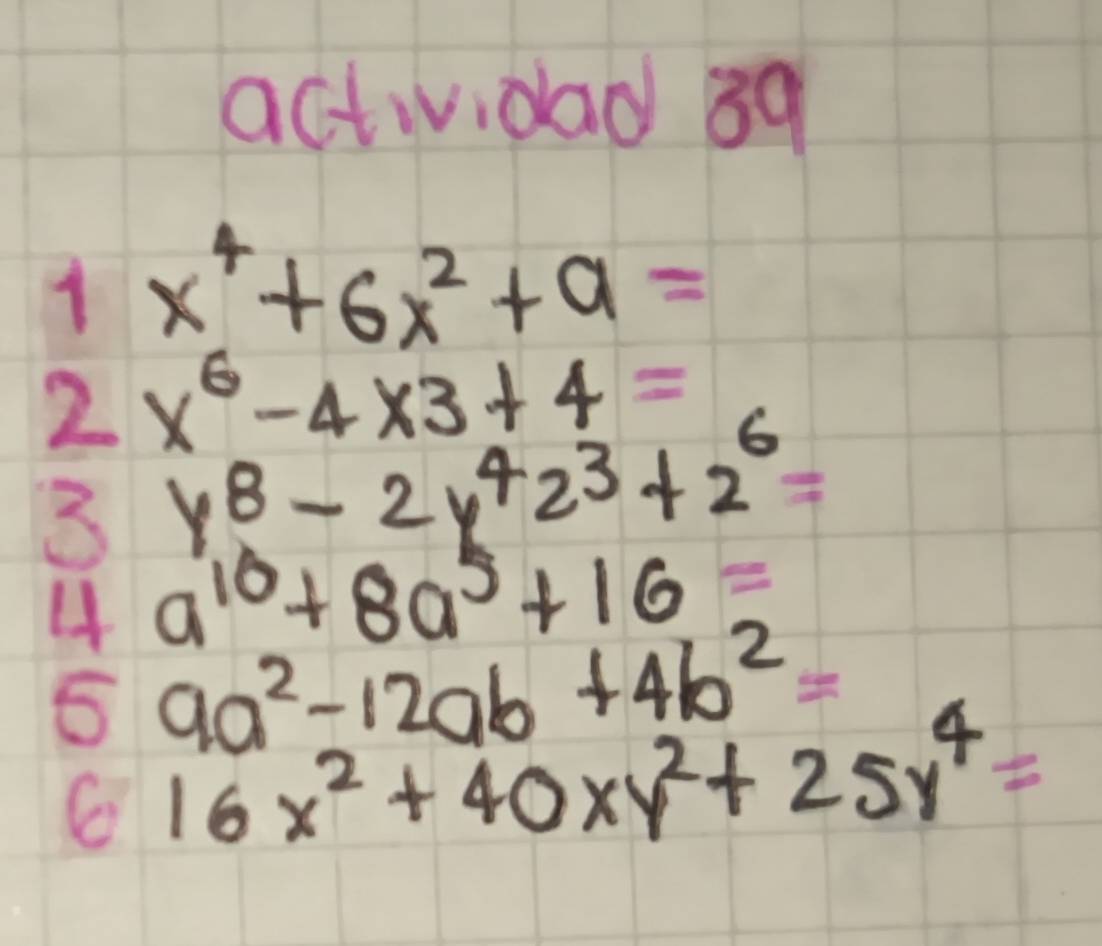 actividad 39
1 x⁴ + 6x² + 9 =
2 x⁶ - 4x3 + 4 =
3 y⁸ - 2y⁴z³ + z⁶ =
4 a¹⁰ + 8a⁵ + 16 =
5 9a² - 12ab + 4b² =
6 16x² + 40xy² + 25y⁴ =